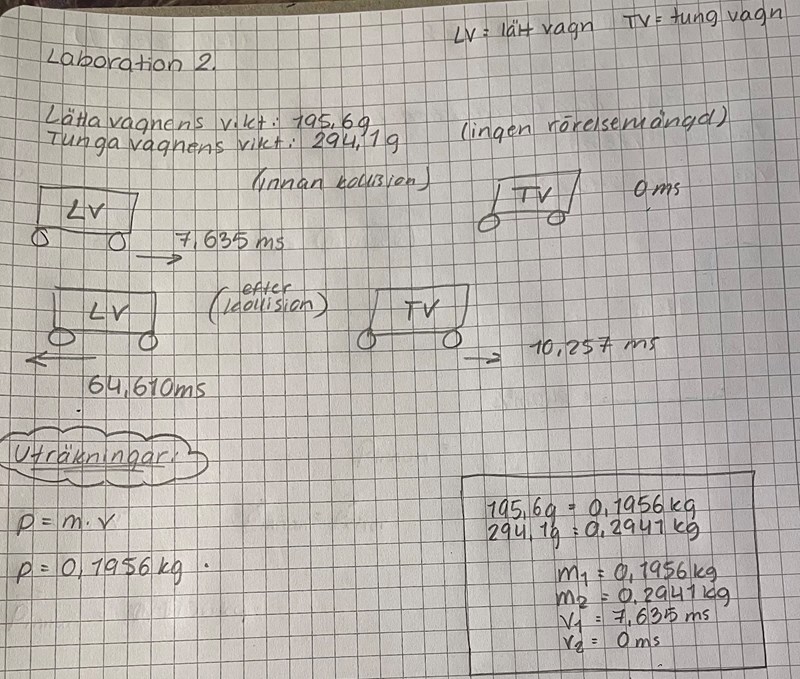 LV = lätt vagn TV = tung vagn
Laboration 2.
Lätta vagnens vikt: 195,6g
Tunga vagnens vikt: 294,1g (ingen rörelsemängd)
(innan kollision)
LV TV 0 ms
7,635 ms
LV (efter kollision) TV
10,257 ms
64,610 ms
Uträkningar:
p = m · v
p = 0,1956 kg ·
195,6g = 0,1956 kg
294,1g = 0,2941 kg
m1 = 0,1956 kg
m2 = 0,2941 kg
v1 = 7,635 ms
v2 = 0 ms